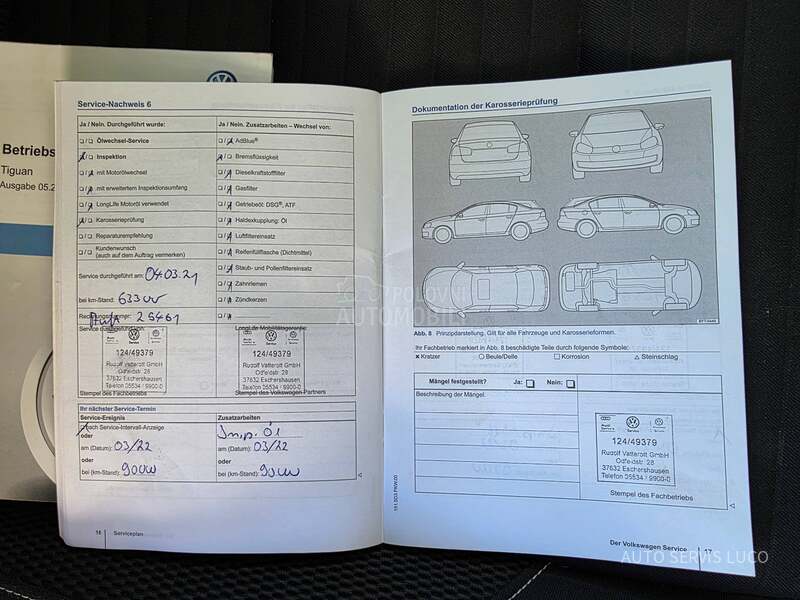 Betriebs
Tiguan
Ausgabe 05.2
Service-Nachweis 6
Ja / Nein. Durchgeführt wurde:
Ölwechsel-Service
Inspektion
mit Motorölwechsel
mit erweitertem Inspektionsumfang
LongLife Motoröl verwendet
Karosserieprüfung
Reparaturempfehlung
Kundenwunsch
(auch auf dem Auftrag vermerken)
Service durchgeführt am: 04.03.21
bei km-Stand:
Service durchgeführt von:
124/49379
Rudolf Vatterott GmbH
Odfeldstr. 28
37632 Eschershausen
Telefon 05534 / 9900-0
Stempel des Fachbetriebs
Ja / Nein. Zusatzarbeiten – Wechsel von:
AdBlue®
Bremsflüssigkeit
Dieselkraftstofffilter
Gasfilter
Getriebeöl: DSG®, ATF
Haldexkupplung: Öl
Luftfiltereinsatz
Reifenfüllflasche (Dichtmittel)
Staub- und Pollenfiltereinsatz
Zahnriemen
Zündkerzen
LongLife Mobilitätsgarantie
124/49379
Rudolf Vatterott GmbH
Odfeldstr. 28
37632 Eschershausen
Telefon 05534 / 9900-0
Stempel des Volkswagen-Partners
Ihr nächster Service-Termin
Service-Ereignis
nach Service-Intervall-Anzeige
oder
am (Datum): 03/22
oder
bei (km-Stand):
Zusatzarbeiten
am (Datum): 03/22
oder
bei (km-Stand):
16 Serviceplan
Dokumentation der Karosserieprüfung
Abb. 8 Prinzipdarstellung, Gilt für alle Fahrzeuge und Karosserieformen.
Ihr Fachbetrieb markiert in Abb. 8 beschädigte Teile durch folgende Symbole:
Kratzer Beule/Delle Korrosion Steinschlag
Mängel festgestellt? Ja: Nein:
Beschreibung der Mängel:
124/49379
Rudolf Vatterott GmbH
Odfeldstr. 28
37632 Eschershausen
Telefon 05534 / 9900-0
Stempel des Fachbetriebs
Der Volkswagen Service 17
POLOVNI
AUTOMOBILI
AUTO SERVIS LUCO